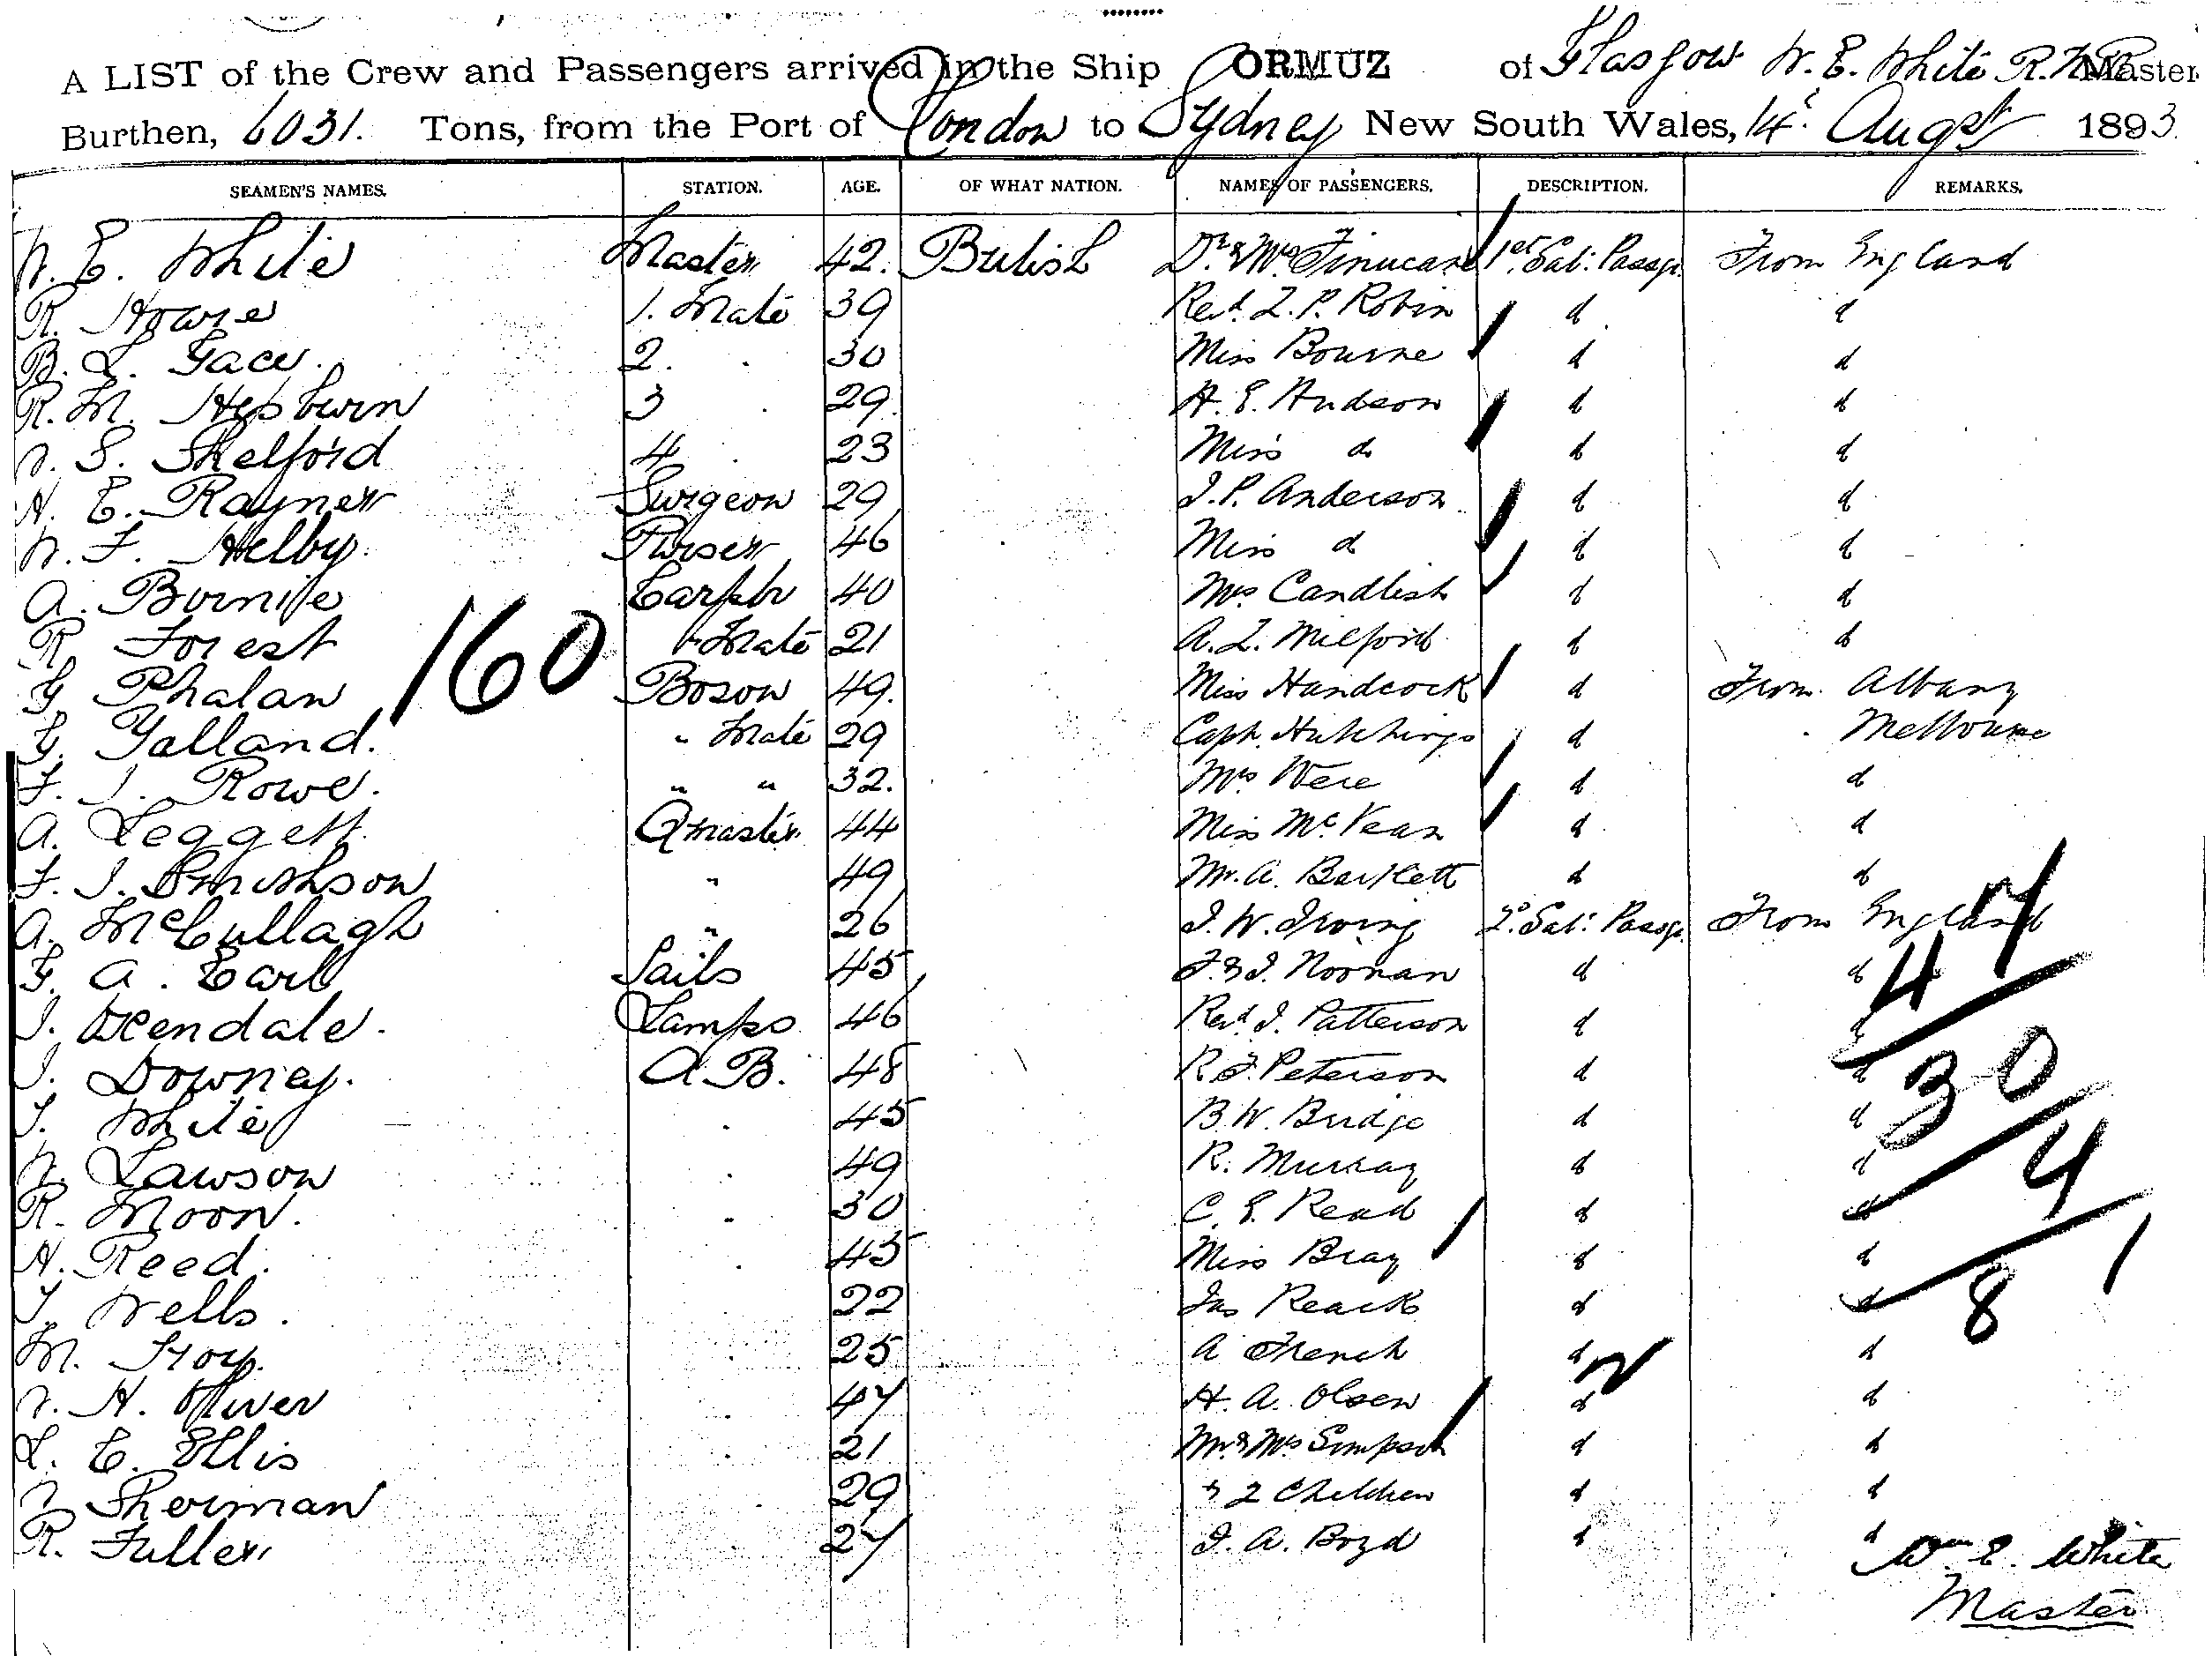 A LIST of the Crew and Passengers arrived in the Ship ORMUZ of Glasgow W. E. White R.N.R. Master
Burthen, 6031. Tons, from the Port of London to Sydney New South Wales, 14 Augst 1893.
SEAMEN'S NAMES. STATION. AGE. OF WHAT NATION. NAMES OF PASSENGERS. DESCRIPTION. REMARKS.
W. E. White Master 42. British Dr & Mrs Finucane 1st Sal: Passgr. From England
R. Howse 1. Mate 39 Revd. L. P. Robin d d
B. L. Gace. 2. . 30 Miss Bourne d d
R. M. Hepburn 3 . 29. H. E. Hudson d d
W. S. Shelford 4 . 23 Miss do d d
H. E. Rayner Surgeon 29 J. P. Anderson d d
W. F. Helby. Purser 46 Miss d d d
A. Birnie Carptr 40 Mrs. Candlish d d
R. Forest " Mate 21 A. L. Milford d d
G Phalan Boson 49. Miss Handcock d From Albany
160
G. Yalland. " Mate 29 Capt. Hutchings d . Melbourne
F. J. Rowe. " " 32. Mrs Were d d
A. Leggett. Qmaster 44 Miss McVean d d
F. J. Smithson " 49 Mr. A. Bartlett d d
A. McCullagh " 26 J. W. Irving 2d. Sal: Passgr. From England
G. A. Earl Sails 45 F. & J. Noonan d d
J. Kendale. Lamps 46 Revd J. Patterson d d
J. Downey. A.B. 48 R. F. Peterson d d
T. White . 45 B. W. Bridge d d
W. Lawson . 49 R. Murray d d
R. Moon. . 30 C. E. Read d d
H. Reed. . 45 Miss Bray d d
T. Wells. 22 Jas Peack d d
M. Troy. . 25 A French d d
W. H. Oliver . 47 H. A. Olsen d d
L. E. Ellis . 21 Mr & Mrs Simpson d d
W Sherman . 29 & 2 Children d d
R. Fuller. 27 J. A. Boyd d d
47
30
4
81
Wm. E. White
Master